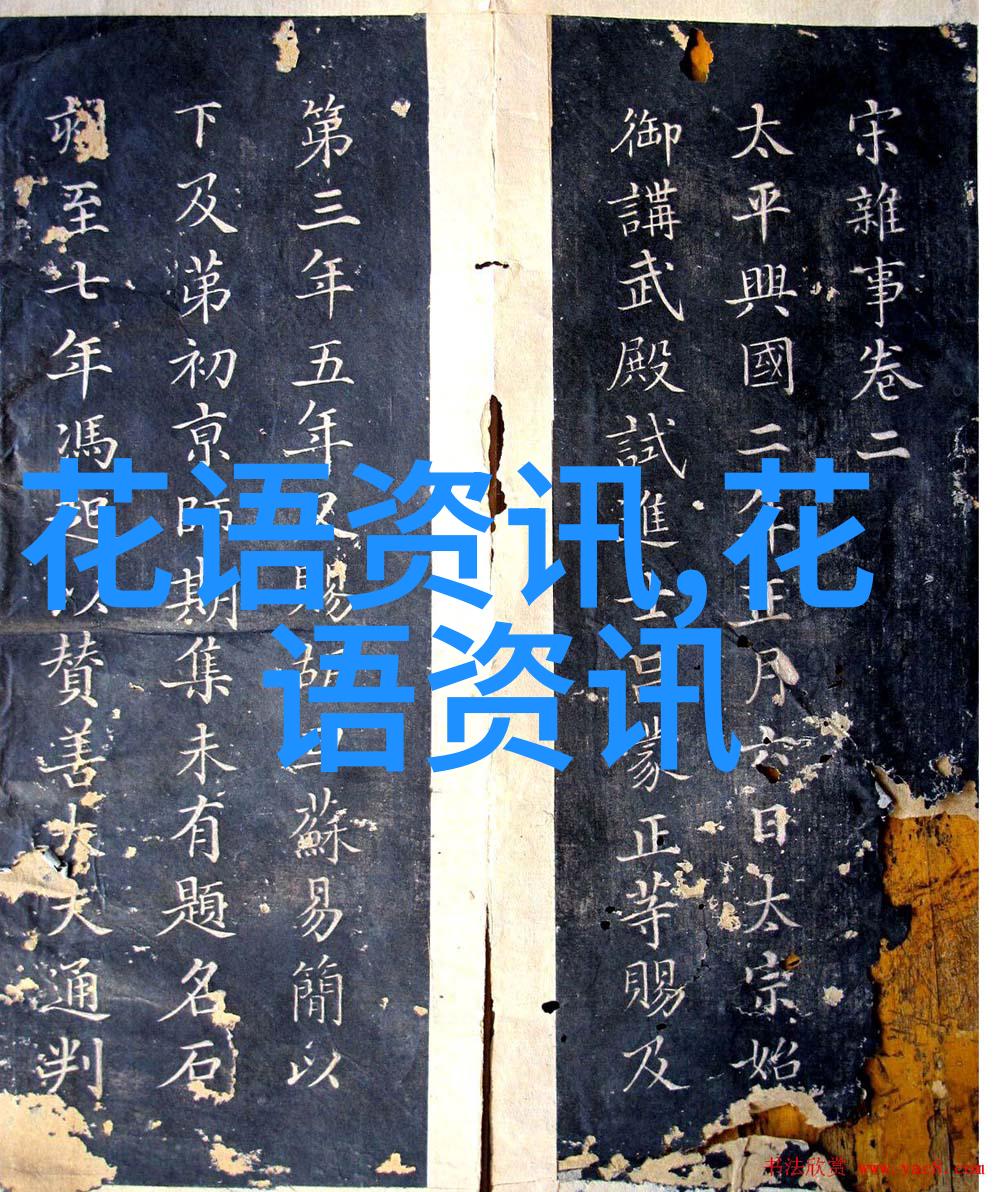 宋雜事卷二
太平興國二年正月六日太宗始
御講武殿試進士呂蒙正等賜及
第三年五年又賜蘇易簡以
下及第初京師期集未有題名石
至七年馮起以贊善大夫通判
花语资讯,花
语资讯
书法欣赏 www.yac8.com